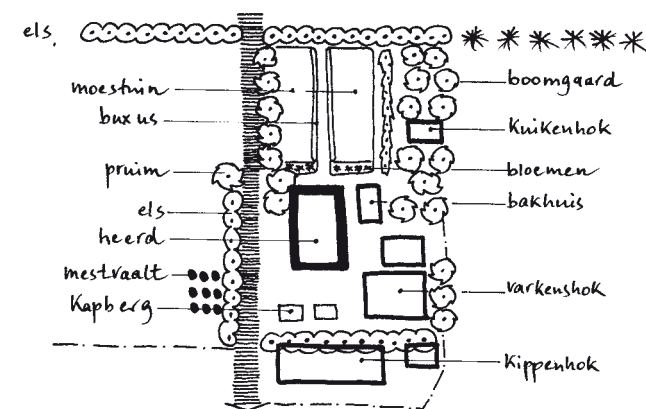 els.
moestuin
buxus
pruim
els
heerd
mestvaalt
Kapberg
boomgaard
Kuikenhok
bloemen
bakhuis
varkenshok
Kippenhok